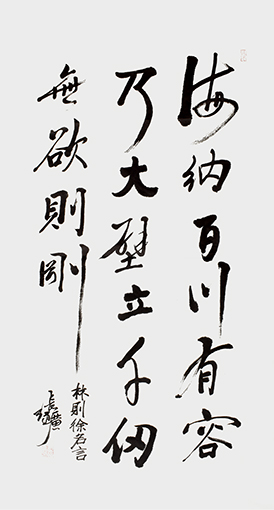 海纳百川有容
乃大壁立千仞
無欲則剛
林则徐名言